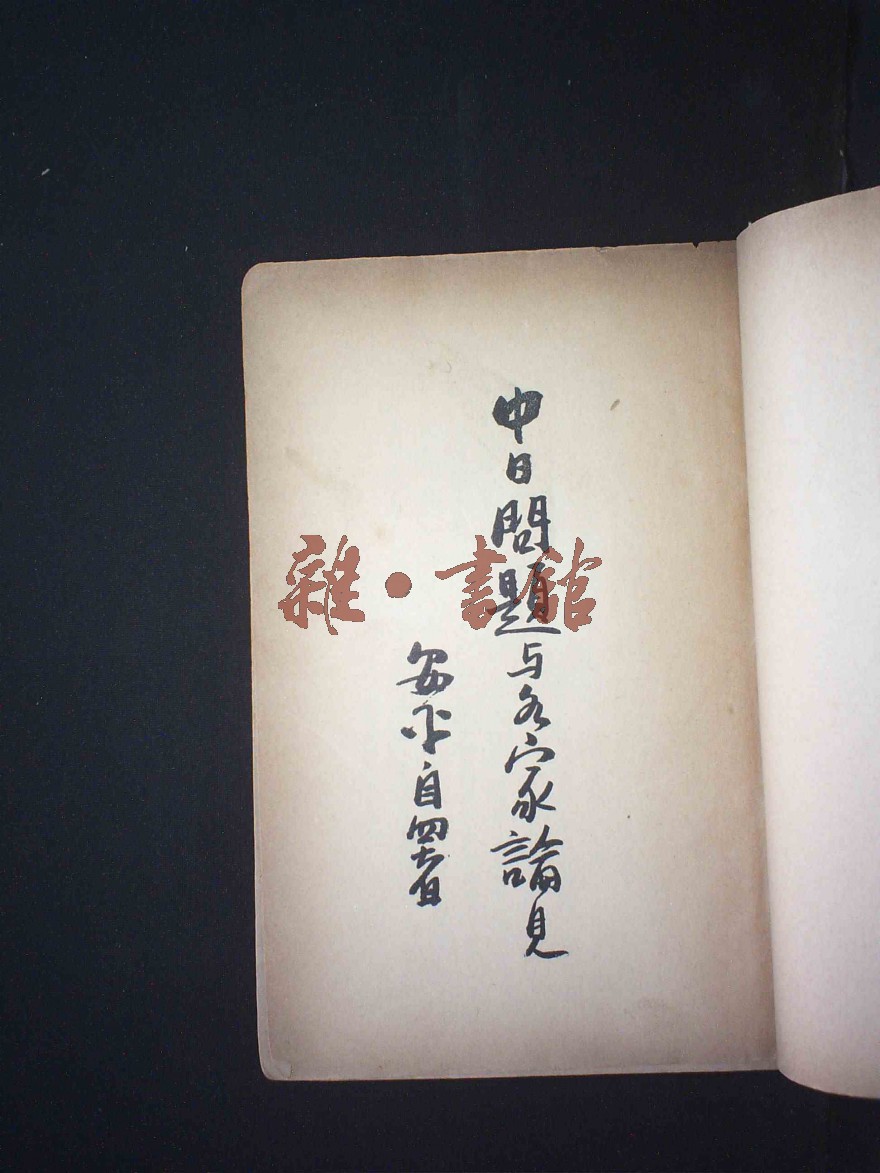 中日問題与各家論見
安平自署
雜·書館